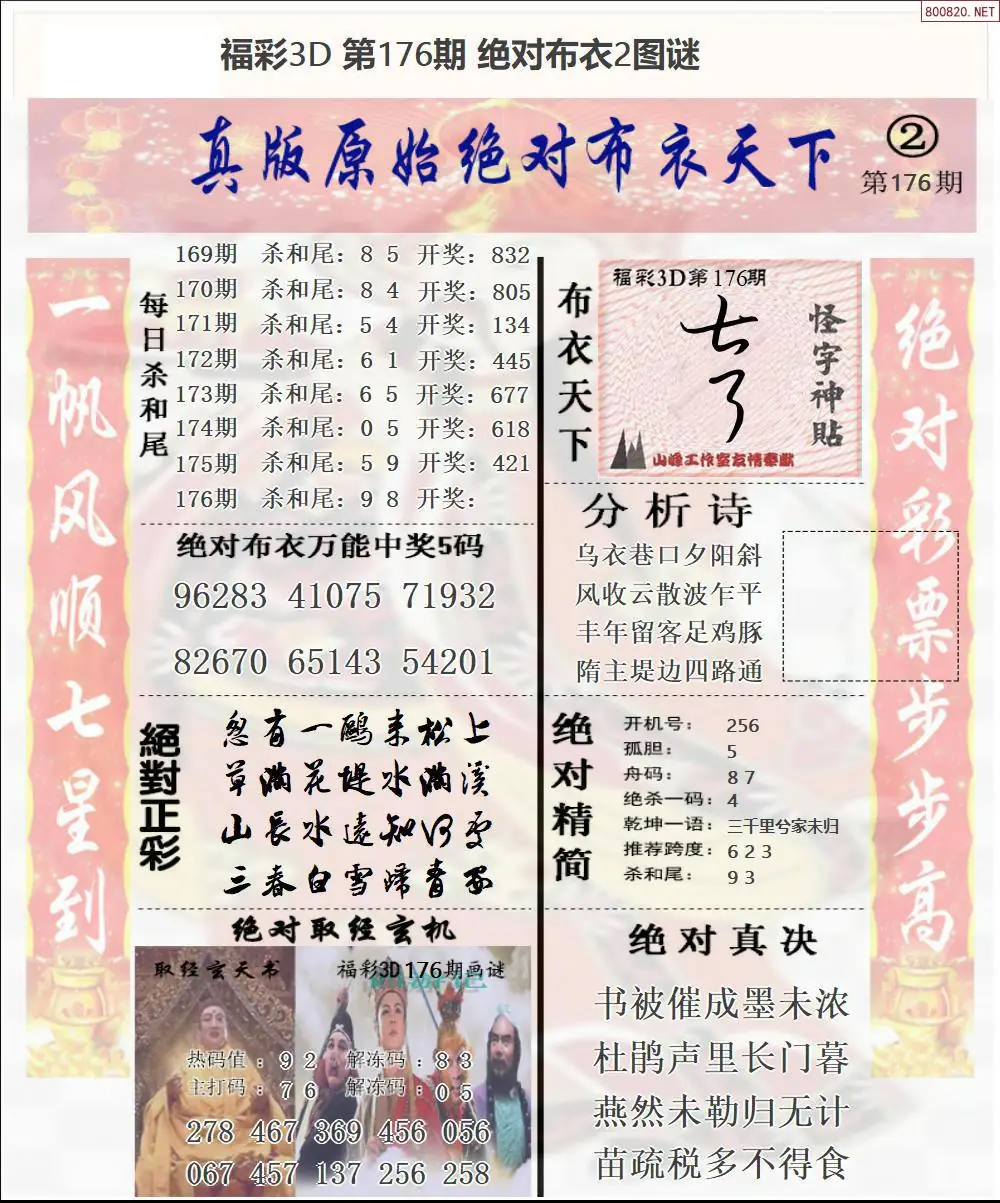 800820.NET
福彩3D 第176期 绝对布衣2图谜
真版原始绝对布衣天下
②
第176期
一帆风顺七星到
每日杀和尾
169期 杀和尾：8 5 开奖：832
170期 杀和尾：8 4 开奖：805
171期 杀和尾：5 4 开奖：134
172期 杀和尾：6 1 开奖：445
173期 杀和尾：6 5 开奖：677
174期 杀和尾：0 5 开奖：618
175期 杀和尾：5 9 开奖：421
176期 杀和尾：9 8 开奖：
绝对布衣万能中奖5码
96283 41075 71932
82670 65143 54201
絕對正彩
忽有一鸥来松上
草满花堤水满溪
山长水远知何更
三春白雪归青
绝对取经玄机
取经玄天书
福彩3D176期画谜
热码值：9 2 解冻码：8 3
主打码：7 6 解冻码：0 5
278 467 369 456 056
067 457 137 256 258
布衣天下
福彩3D第176期
怪字神貼
山峰工作室友情奉献
分析诗
乌衣巷口夕阳斜
风收云散波乍平
丰年留客足鸡豚
隋主堤边四路通
绝对精简
开机号： 256
孤胆： 5
舟码： 8 7
绝杀一码：4
乾坤一语：三千里兮家未归
推荐跨度：6 2 3
杀和尾： 9 3
绝对真决
书被催成墨未浓
杜鹃声里长门暮
燕然未勒归无计
苗疏税多不得食
绝对彩票步步高